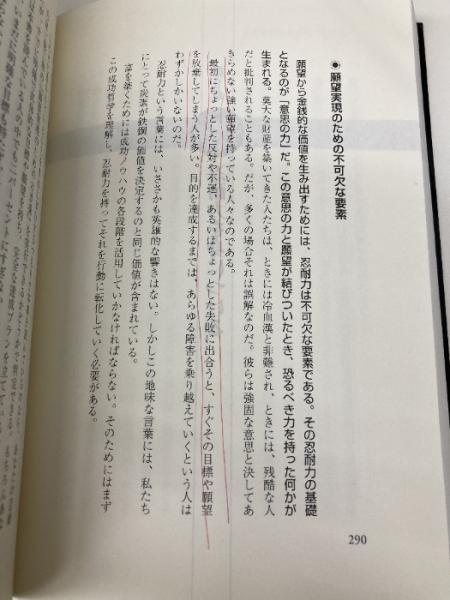 ●願望実現のための不可欠な要素
願望から金銭的な価値を生み出すためには、忍耐力は不可欠な要素である。その忍耐力の基礎
となるのが「意思の力」だ。この意思の力と願望が結びついたとき、恐るべき力を持った何かが
生まれる。莫大な財産を築いてきた人たちは、ときには冷血漢と非難され、ときには、残酷な人
だと批判されることもある。だが、多くの場合それは誤解なのだ。彼らは強固な意思と決してあ
きらめない強い願望を持っている人々なのである。
最初にちょっとした反対や不運、あるいはちょっとした失敗に出合うと、すぐその目標や願望
を放棄してしまう人が多い。目的を達成するまでは、あらゆる障害を乗り越えていくという人は
わずかしかいないのだ。
忍耐力という言葉には、いささかも英雄的な響きはない。しかしこの地味な言葉には、私たち
にとって炭素が鉄鋼の価値を決定するのと同じ価値が含まれている。
富を築くためには成功ノウハウの各段階を活用していかなければならない。そのためにはまず
この成功哲学を理解し、忍耐力を持ってそれを行動に転化していく必要がある。
290